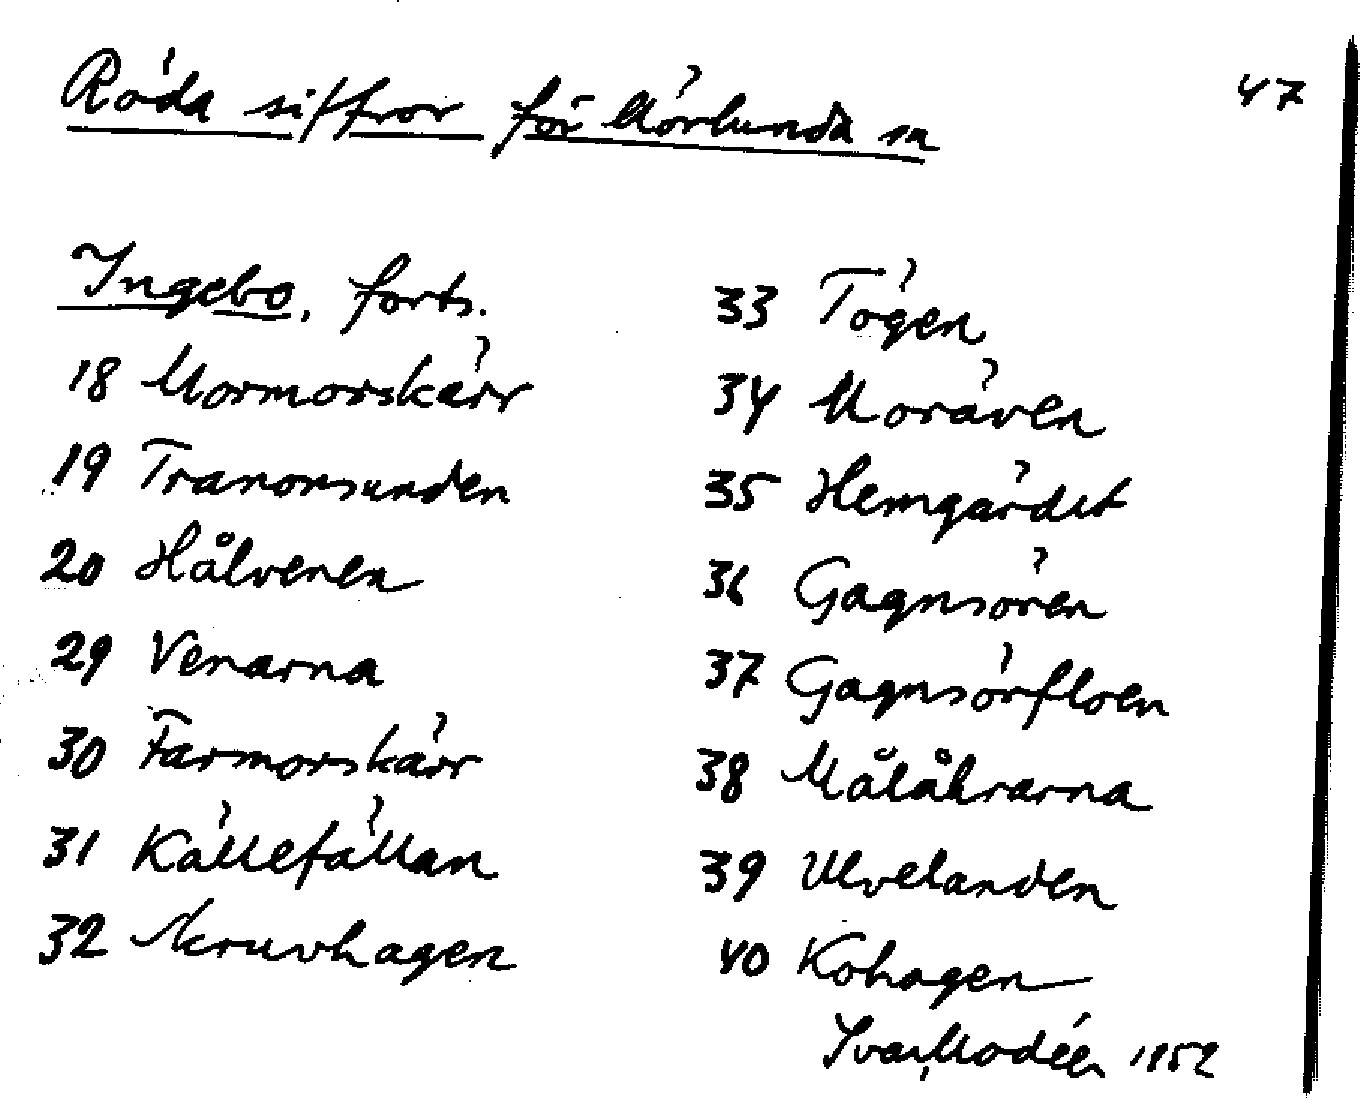 Röda siffror för Mörlunda sn
47
Ingebo, forts.
18 Mormorskärr
19 Tranorsunden
20 Hålvenen
29 Venarna
30 Farmorskärr
31 Källefällan
32 Skruvhagen
33 Tögen
34 Moräven
35 Hemgärdet
36 Gagnsören
37 Gagnsörfloen
38 Målåkrarna
39 Ulvelanden
40 Kohagen
Ivar Modéer